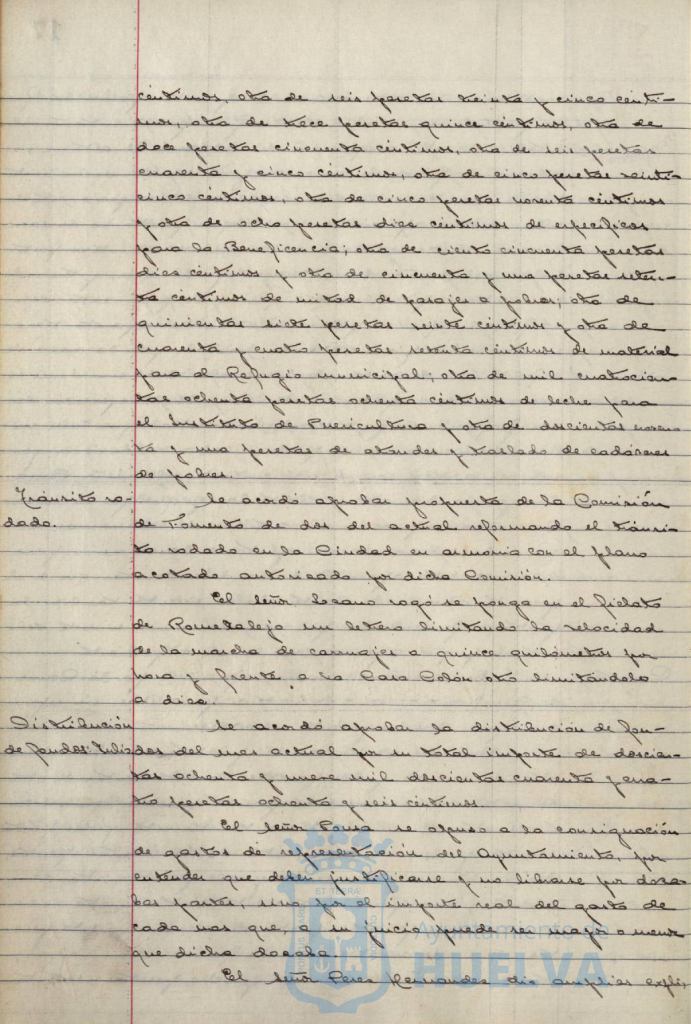 céntimos, otra de seis pesetas treinta y cinco cénti-
mos, otra de trece pesetas quince céntimos, otra de
doce pesetas cincuenta céntimos, otra de seis pesetas
cuarenta y cinco céntimos, otra de cinco pesetas veinti-
cinco céntimos, otra de cinco pesetas noventa céntimos
y otra de ocho pesetas diez céntimos de específicos
para la Beneficencia; otra de ciento cincuenta pesetas
diez céntimos y otra de cincuenta y una pesetas seten-
ta céntimos de mitad de pasajes a pobres; otra de
quinientas siete pesetas veinte céntimos y otra de
cuarenta y cuatro pesetas setenta céntimos de material
para el Refugio municipal; otra de mil cuatrocien-
tas ochenta pesetas ochenta céntimos de leche para
el Instituto de Puericultura y otra de doscientas noven-
ta y una pesetas de ataudes y traslado de cadáveres
de pobres.
Tránsito ro-
dado.
Se acordó aprobar propuesta de la Comisión
de Fomento de dos del actual reformando el tránsi-
to rodado en la Ciudad en armonía con el plano
acotado autorizado por dicha Comisión.
El señor Lozano rogó se ponga en el fielato
de Romeralejo un letrero limitando la velocidad
de la marcha de carruajes a quince quilómetros por
hora y frente a la Casa Colón otro limitándola
a diez.
Distribución
de fondos. Julio
Se acordó aprobar la distribución de fon-
dos del mes actual por su total importe de doscien-
tas ochenta y nueve mil doscientas cuarenta y cua-
tro pesetas ochenta y seis céntimos.
El señor Pousa se opuso a la consignación
de gastos de representación del Ayuntamiento, por
entender que deben justificarse y no librarse por doza-
bas partes, sino por el importe real del gasto de
cada mes que, a su juicio puede ser mayor o menor
que dicha dozaba.
El señor Perez Hernandez dio amplias expli-
ET TERRAE
Ayuntamiento de
HUELVA